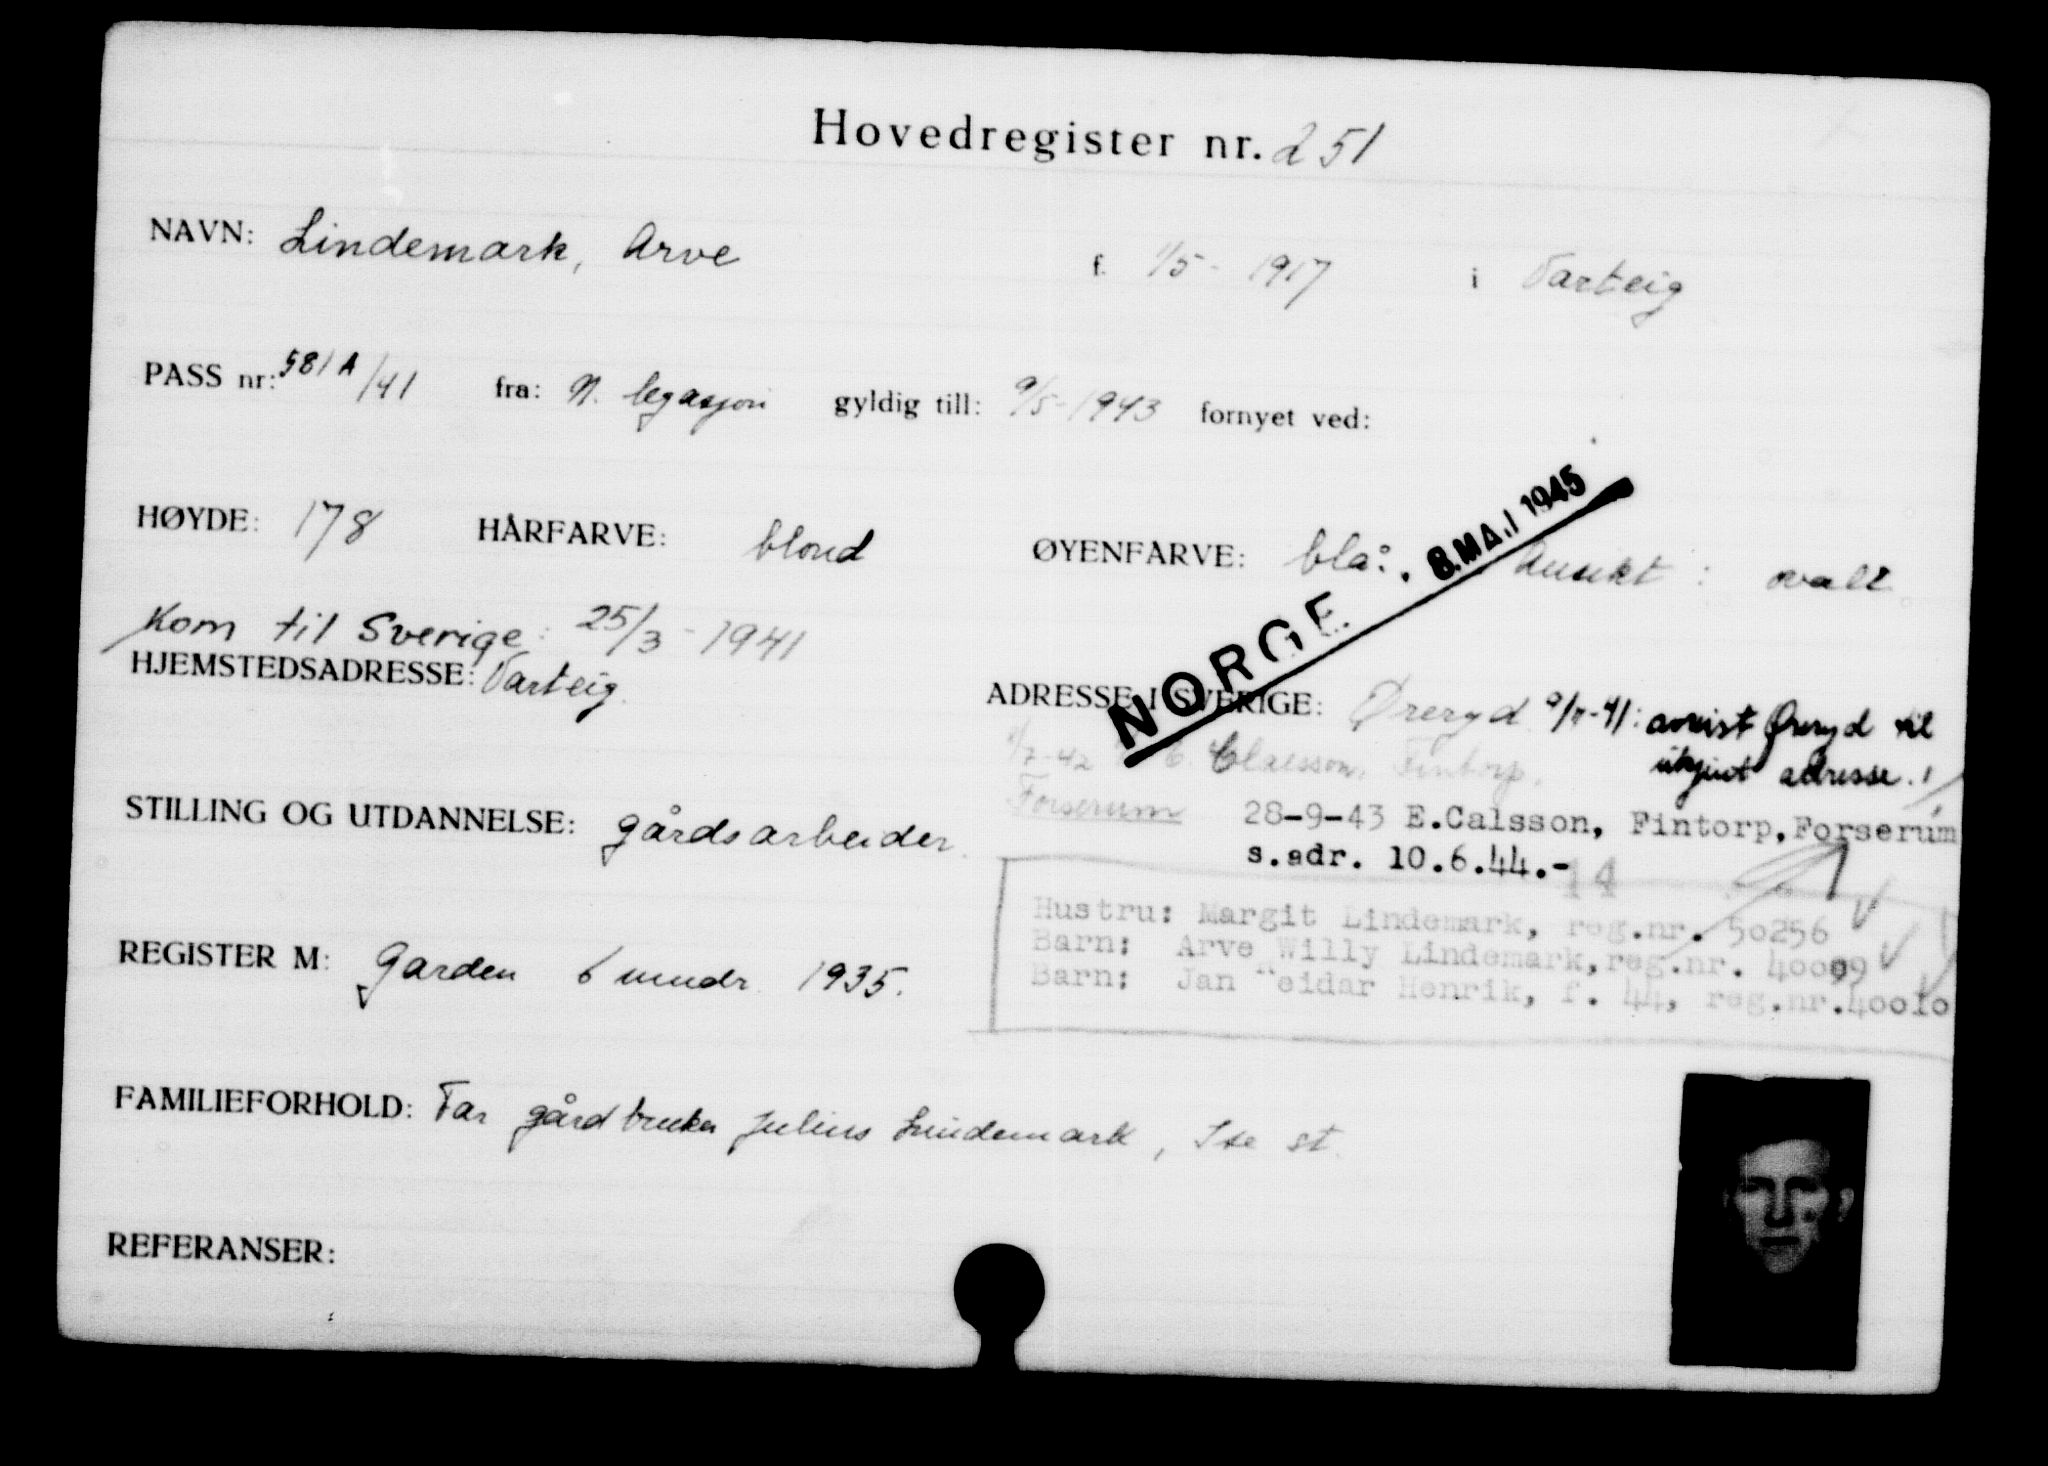 Hovedregister nr. 251
NAVN: Lindemark, Arve f. 1/5 - 1917 i Varteig
PASS nr: 581 A/41 fra: N. legasjon gyldig till: 9/5-1943 fornyet ved:
HØYDE: 178 HÅRFARVE: blond ØYENFARVE: blå. Ansikt: ovalt
NORGE 8. MAI 1945
Kom til Sverige: 25/3 - 1941
HJEMSTEDSADRESSE: Varteig.
ADRESSE I SVERIGE: Øreryd 9/7-41: avreist Øreryd til
ukjent adresse.
/7-42 Claesson, Fintorp,
Forserum 28-9-43 E.Calsson, Fintorp,Forserum
s.adr. 10.6.44.-
14
STILLING OG UTDANNELSE: gårdsarbeider.
Hustru: Margit Lindemark, reg.nr. 50256
Barn: Arve Willy Lindemark,reg.nr. 40009
Barn: Jan "eidar Henrik, f. 44, reg.nr.40010
REGISTER M: Garden 6 1935.
FAMILIEFORHOLD: Far gårdbruker Julius Lindemark, st.
REFERANSER: